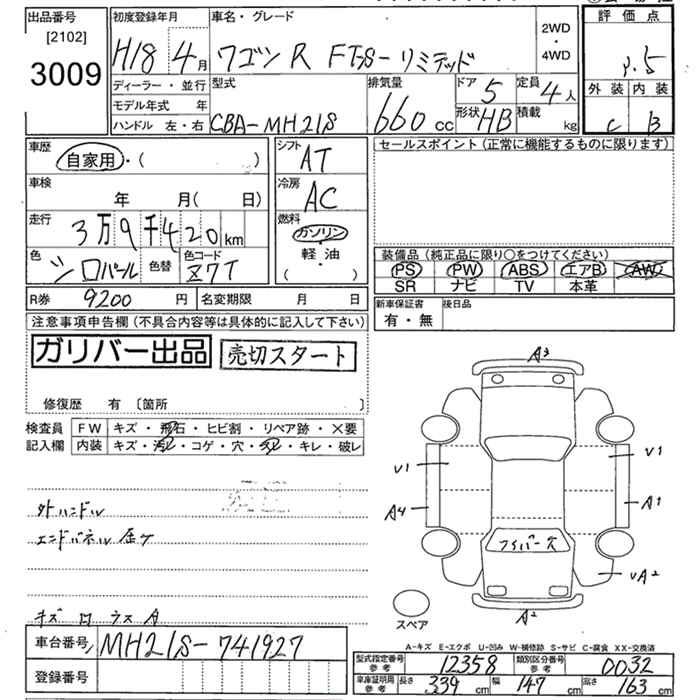 出品番号
[2102]
3009
初度登録年月
H18 4月
車名・グレード
ワゴンR FT-Sーリミテッド
2WD
・
4WD
評価点
3.5
外装 内装
C B
ディーラー・並行
モデル年式 年
ハンドル 左・右
型式
CBA-MH21S
排気量
660cc
ドア 5
形状 HB
定員 4人
積載 kg
車歴
自家用・( )
車検
年 月( 日)
走行
3万9千420km
色
シロパール
色替
色コード
Z7T
シフト
AT
冷房
AC
燃料
ガソリン
軽・油
( )
セールスポイント(正常に機能するものに限ります)
装備品(純正品に限り○をつけてください)
PS PW ABS エアB AW
SR ナビ TV 本革
R券 9200円 名変期限 月 日
新車保証書
有・無
後日品
注意事項申告欄(不具合内容等は具体的に記入して下さい)
ガリバー出品 売切スタート
修復歴 有 〔箇所 〕
検査員
記入欄
FW キズ・飛石・ヒビ割・リペア跡・×要
内装 キズ・汚れ・コゲ・穴・スレ・キレ・破レ
外ハンドル
エンドパネル 歪ケ
キズ
A3
U1 U1
A4 A1
ファイバー穴
UA2
A2
スペア
A-キズ E-エクボ U-凹み W-補修跡 S-サビ C-腐食 XX-交換済
車台番号 MH21S-741927
登録番号
型式指定番号
参考
12358
類別区分番号
参考
0032
車庫証明用
参考
長さ 339cm 幅 147cm 高さ 163cm